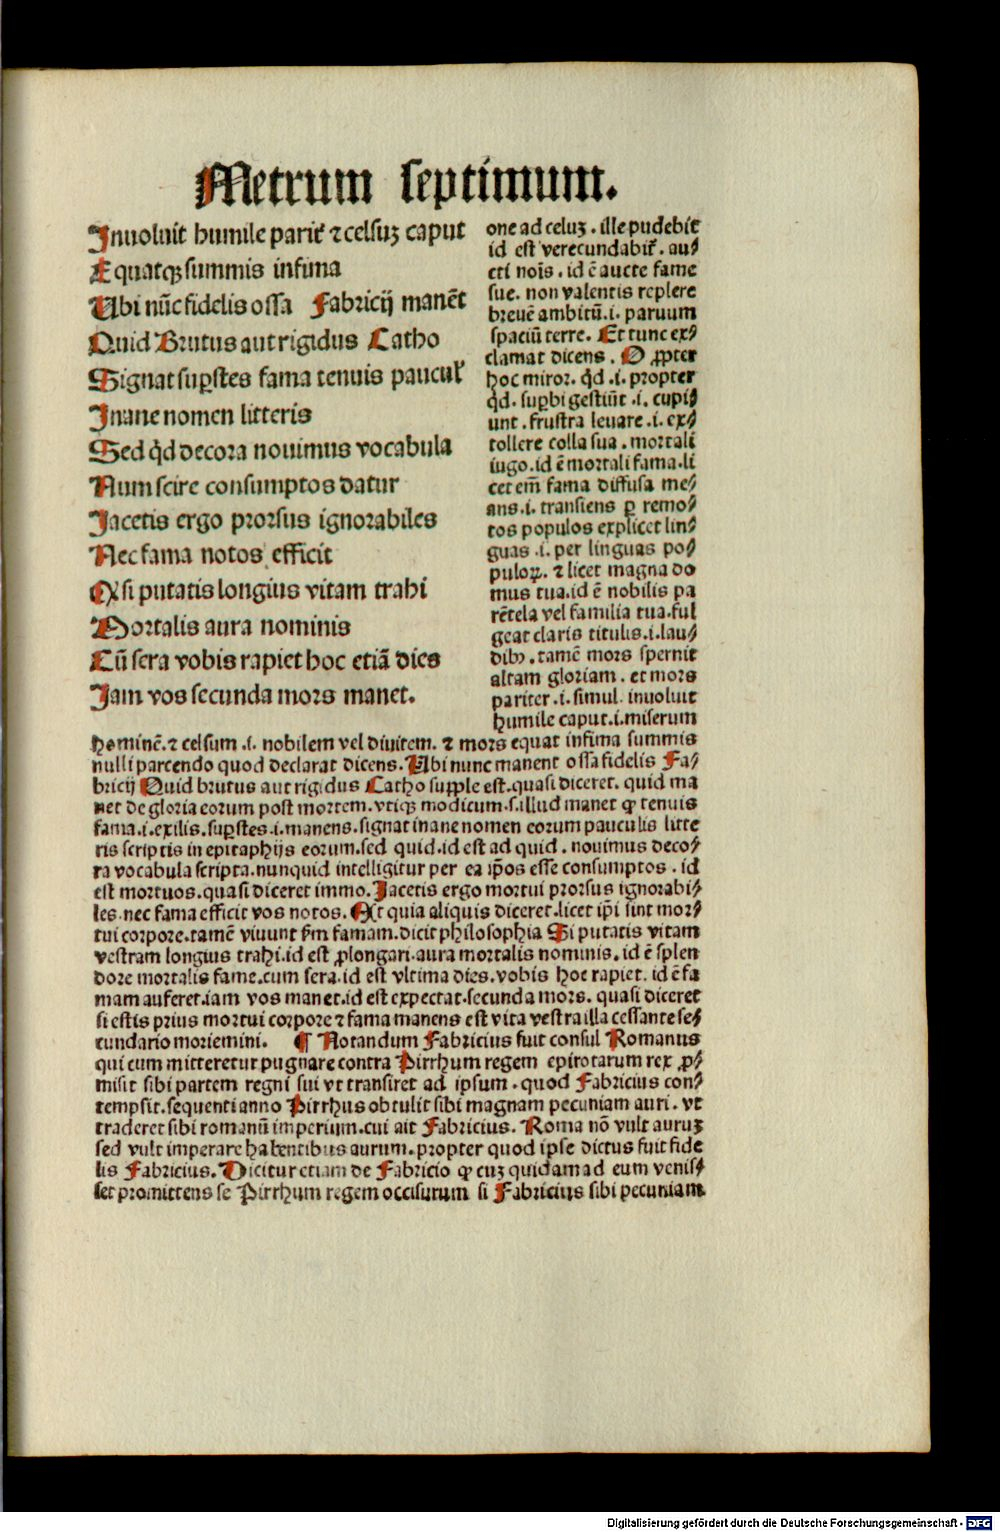 Metrum septimum.
Inuoluit humile parit̃ ⁊ celsuꝫ caput
Equatqꝫ summis infima
Ubi nũc fidelis ossa Fabricij manẽt
Quid Brutus aut rigidus Catho
Signat suꝑstes fama tenuis paucul̛
Inane nomen litteris
Sed qd̛ decora nouimus vocabula
Num scire consumptos datur
Jacetis ergo prorsus ignorabiles
Nec fama notos efficit
Qꝛ si putatis longius vitam trahi
Mortalis aura nominis
Cũ sera vobis rapiet hoc etiã dies
Jam vos secunda mors manet.
one ad celuꝫ . ille pudebit
id est verecundabit̃ . au⸗
cti noĩs . id ẽ aucte fame
sue . non valentis replere
breuẽ ambitũ .i. paruum
spaciũ terre . Et tunc ex⸗
clamat dicens . O ꝓpter
hoc miror . qd̛ .i. propter
qd̛ . suꝑbi gestiũt .i. cupi⸗
unt . frustra leuare .i. ex⸗
tollere colla sua . mortali
iugo . id ẽ mortali fama . li
cet em̃ fama diffusa me⸗
ans .i. transiens ꝑ remo⸗
tos populos explicet lin⸗
guas .i. per linguas po⸗
puloꝝ . ⁊ licet magna do
mus tua . id ẽ nobilis pa
rẽtela vel familia tua . ful
geat claris titulis .i. lau⸗
dibꝫ . tamẽ mors spernit
altam gloriam . et mors
pariter .i. simul inuoluit
humile caput .i. miserum
hominẽ . ⁊ celsum .i. nobilem vel diuitem . ⁊ mors equat infima summis
nulli parcendo quod declarat dicens . Ubi nunc manent ossa fidelis Fa⸗
bricij Quid brutus aut rigidus Catho supple est . quasi diceret . quid ma
net de gloria eorum post mortem . vtiqꝫ modicum . s. illud manet ꝙ tenuis
fama .i. exilis . suꝑstes .i. manens . signat inane nomen eorum pauculis litte
ris scriptis in epitaphijs eorum . sed quid . id est ad quid . nouimus deco⸗
ra vocabula scripta . nunquid intelligitur per ea ip̃os esse consumptos . id
est mortuos . quasi diceret immo . Jacetis ergo mortui prorsus ignorabi⸗
les . nec fama efficit vos notos . Et quia aliquis diceret . licet ip̃i sint mor⸗
tui corpore . tamẽ viuunt ẜm famam . dicit philosophia Si putatis vitam
vestram longius trahi . id est ꝓlongari . aura mortalis nominis . id ẽ splen
dore mortalis fame . cum sera . id est vltima dies . vobis hoc rapiet . id ẽ fa
mam auferet . iam vos manet . id est expectat . secunda mors . quasi diceret
si estis prius mortui corpore ⁊ fama manens est vita vestra illa cessante se⸗
cundario moriemini . ¶ Notandum Fabricius fuit consul Romanus
qui cum mitteretur pugnare contra Pirrhum regem epirotarum rex ꝓ⸗
misit sibi partem regni sui vt transiret ad ipsum . quod Fabricius con⸗
tempsit . sequenti anno Pirrhus obtulit sibi magnam pecuniam auri . vt
traderet sibi romanũ imperium . cui ait Fabricius . Roma nõ vult auruꝫ
sed vult imperare habentibus aurum . propter quod ipse dictus fuit fide
lis Fabricius . Dicitur etiam de Fabricio ꝙ cuꝫ quidam ad eum venis⸗
set promittens se Pirrhum regem occisurum si Fabricius sibi pecuniam
Digitalisierung gefördert durch die Deutsche Forschungsgemeinschaft - DFG